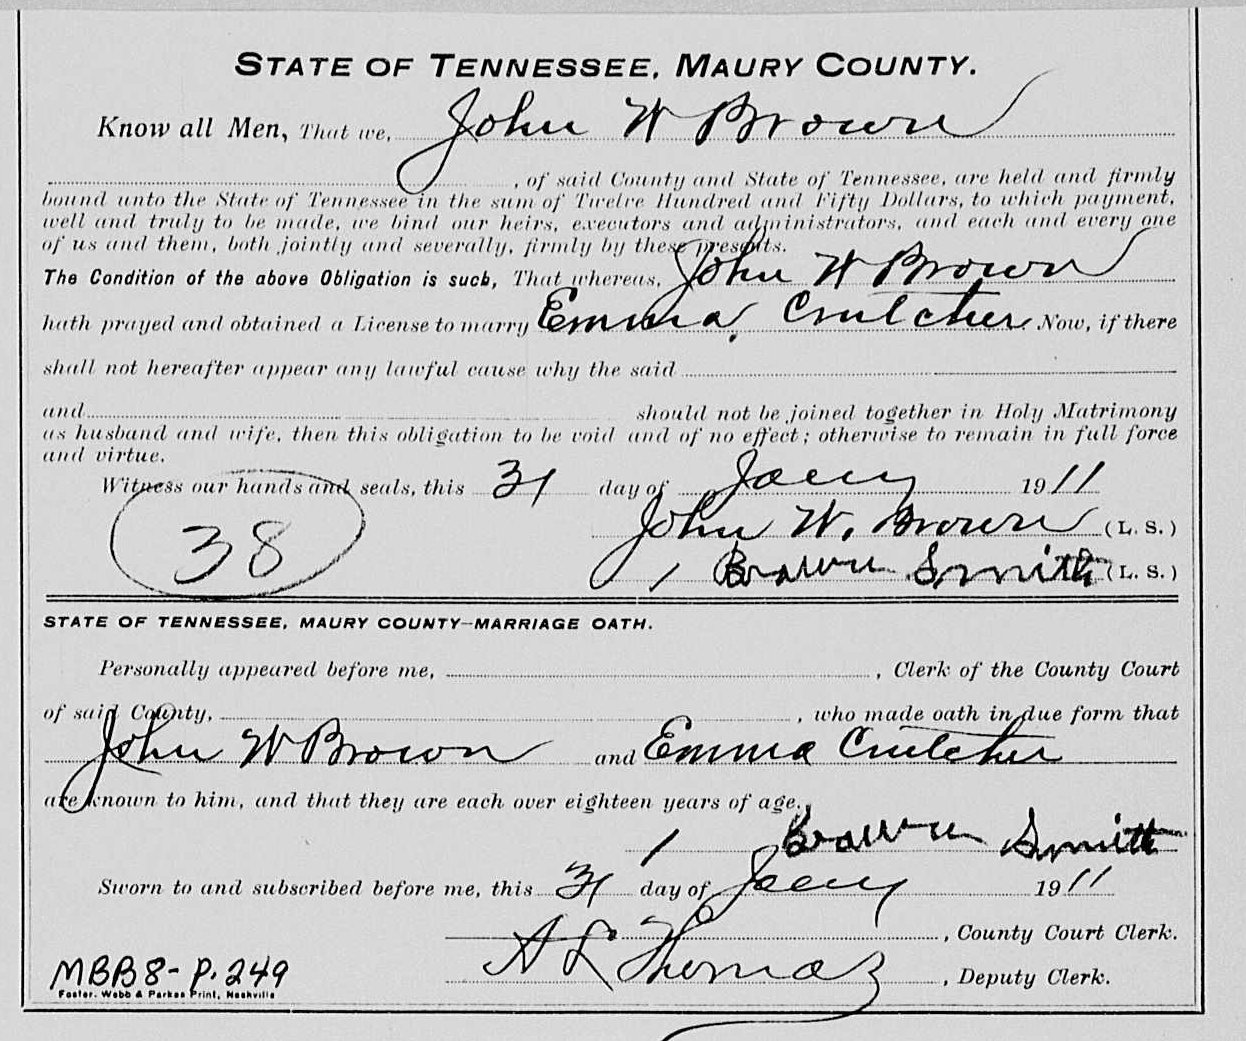 STATE OF TENNESSEE, MAURY COUNTY.
Know all Men, That we, John W Brown
, of said County and State of Tennessee, are held and firmly
bound unto the State of Tennessee in the sum of Twelve Hundred and Fifty Dollars, to which payment,
well and truly to be made, we bind our heirs, executors and administrators, and each and every one
of us and them, both jointly and severally, firmly by these presents.
The Condition of the above Obligation is such, That whereas, John W Brown
hath prayed and obtained a License to marry Emma Crutcher Now, if there
shall not hereafter appear any lawful cause why the said
and should not be joined together in Holy Matrimony
as husband and wife, then this obligation to be void and of no effect; otherwise to remain in full force
and virtue.
Witness our hands and seals, this 31 day of 1911
John W. Brown (L. S.)
38
Smith (L. S.)
STATE OF TENNESSEE, MAURY COUNTY—MARRIAGE OATH.
Personally appeared before me, , Clerk of the County Court
of said County, , who made oath in due form that
John W Brown and Emma Crutcher
are known to him, and that they are each over eighteen years of age.
Smith
Sworn to and subscribed before me, this 31 day of 1911
, County Court Clerk.
A L Thomas , Deputy Clerk.
MBB8-P.249
Foster, Webb & Parkes Print, Nashville